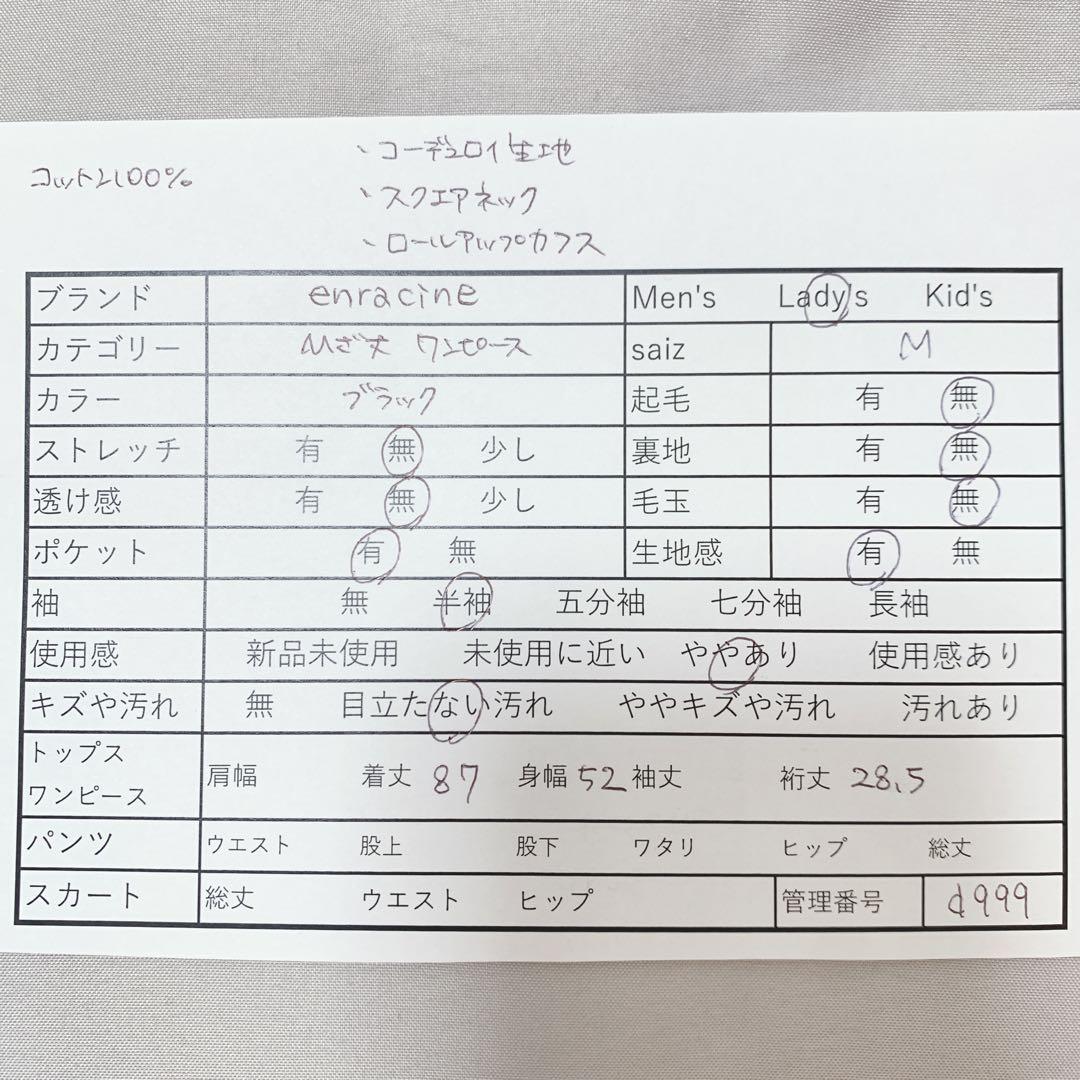 コットン100%
、コーデュロイ生地
、スクエアネック
、ロールアップカフス
ブランド enracine Men's Lady's Kid's
カテゴリー ひざ丈 ワンピース saiz M
カラー ブラック 起毛 有 無
ストレッチ 有 無 少し 裏地 有 無
透け感 有 無 少し 毛玉 有 無
ポケット 有 無 生地感 有 無
袖 無 半袖 五分袖 七分袖 長袖
使用感 新品未使用 未使用に近い ややあり 使用感あり
キズや汚れ 無 目立たない汚れ ややキズや汚れ 汚れあり
トップス
ワンピース 肩幅 着丈 87 身幅 52 袖丈 裄丈 28.5
パンツ ウエスト 股上 股下 ワタリ ヒップ 総丈
スカート 総丈 ウエスト ヒップ 管理番号 d999